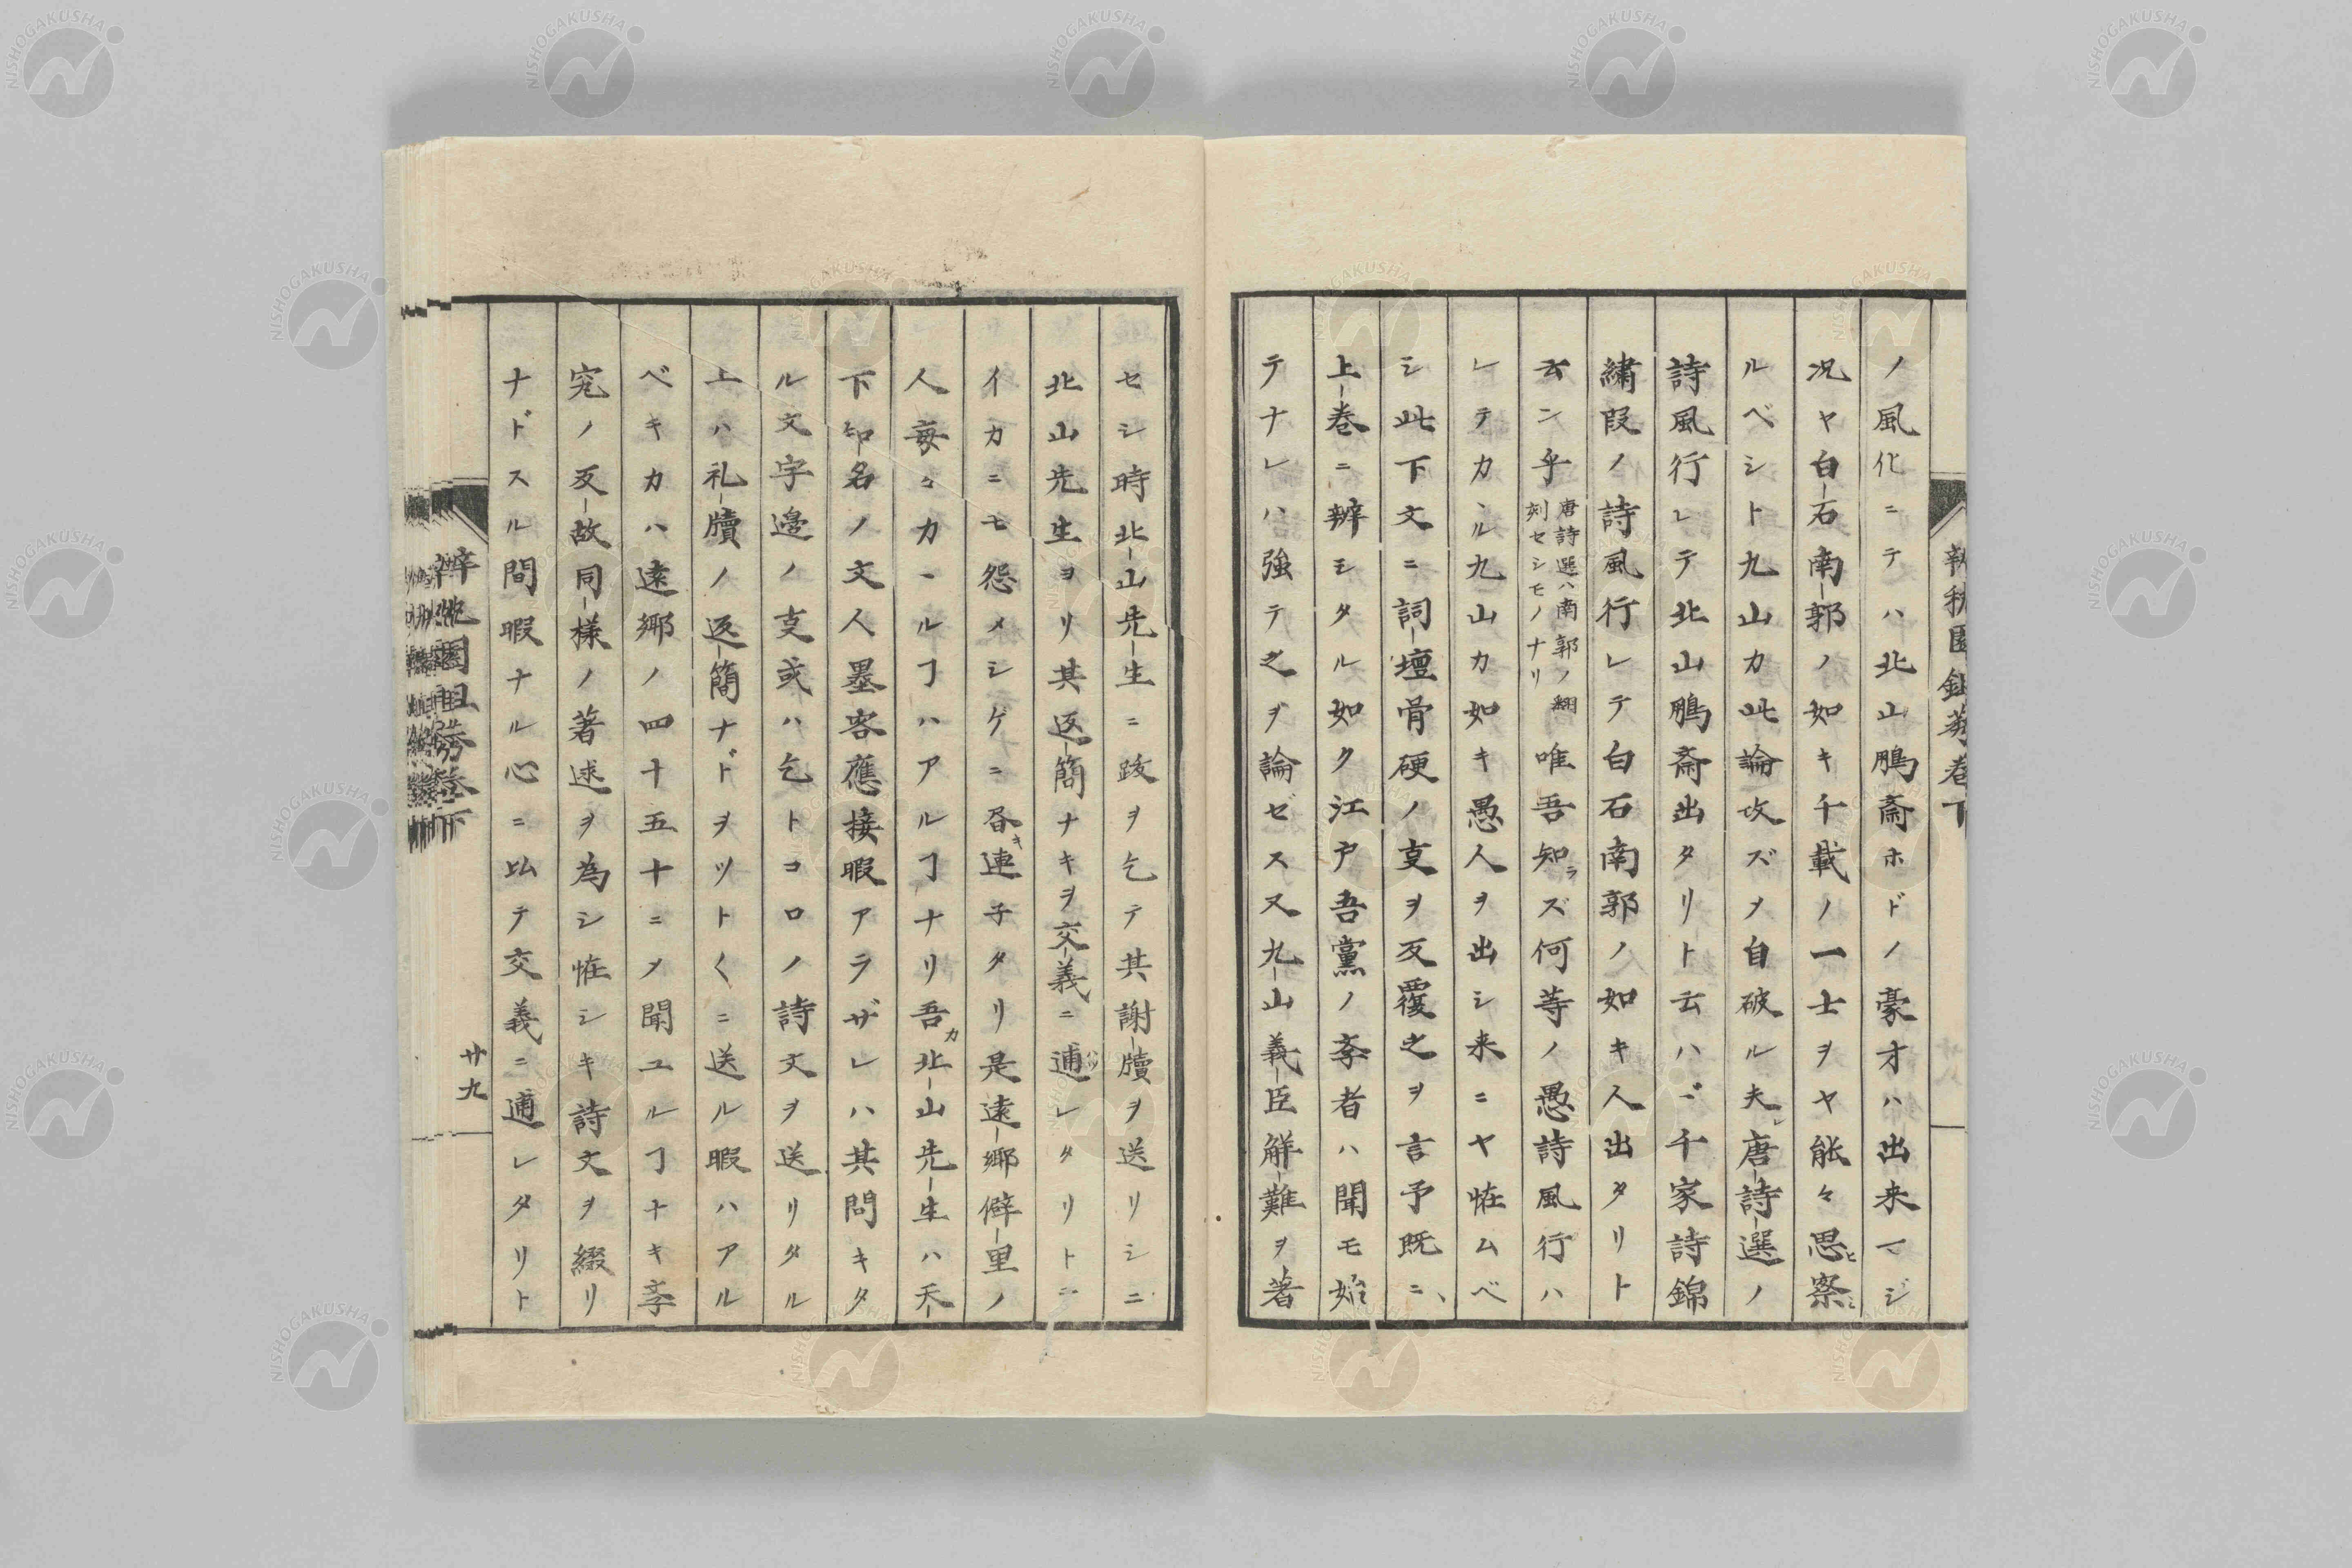 ノ風化ニテハ北山鵬斎ホドノ豪才ハ出来マジ
況ヤ白石南郭ノ如キ千載ノ一士ヲヤ能々思ヒ察ミ
ルベシト九山カ此論攻ズメ自破ル夫レ唐詩選ノ
詩風行レテ北山鵬斎出タリト云ハヾ千家詩錦
繍段ノ詩風行レテ白石南郭ノ如キ人出タリト
云ン乎
唐詩選ハ南郭ノ翻
刻セシモノナリ
唯吾知ラズ何等ノ愚詩風行ハ
レテカヽル九山カ如キ愚人ヲ出シ来ニヤ恠ムベ
シ此下文ニ詞壇骨硬ノ支ヲ反覆之ヲ言予既ニ、
上巻ニ辨モタル如ク江戸吾黨ノ斈者ハ聞モ始ミ
テナレハ強テ之ヲ論ゼス又九山義臣解難ヲ著
セシ時北山先生ニ跋ヲ乞テ其謝牘ヲ送リシニ
北山先生ヨリ其返簡ナキヲ交義ニ逋レタリトニ
イカニモ怨メシゲニ呑キ連子タリ是遠郷僻里ノ
人毎々カヽルヿハアルヿナリ吾カ北山先生ハ天
下知名ノ文人墨客應接暇アラザレハ其問キタ
ル文字邉ノ支或ハ乞トコロノ詩文ヲ送リタル
上ハ礼牘ノ返簡ナドヲツト〱ニ送ル暇ハアル
ベキカハ遠郷ノ四十五十ニメ聞ユルヿナキ斈
究ノ反故同様ノ著述ヲ為シ恠シキ詩文ヲ綴リ
ナドスル間暇ナル心ニ比テ交義ニ逋レタリト
廿九
NISHOGAKUSHA